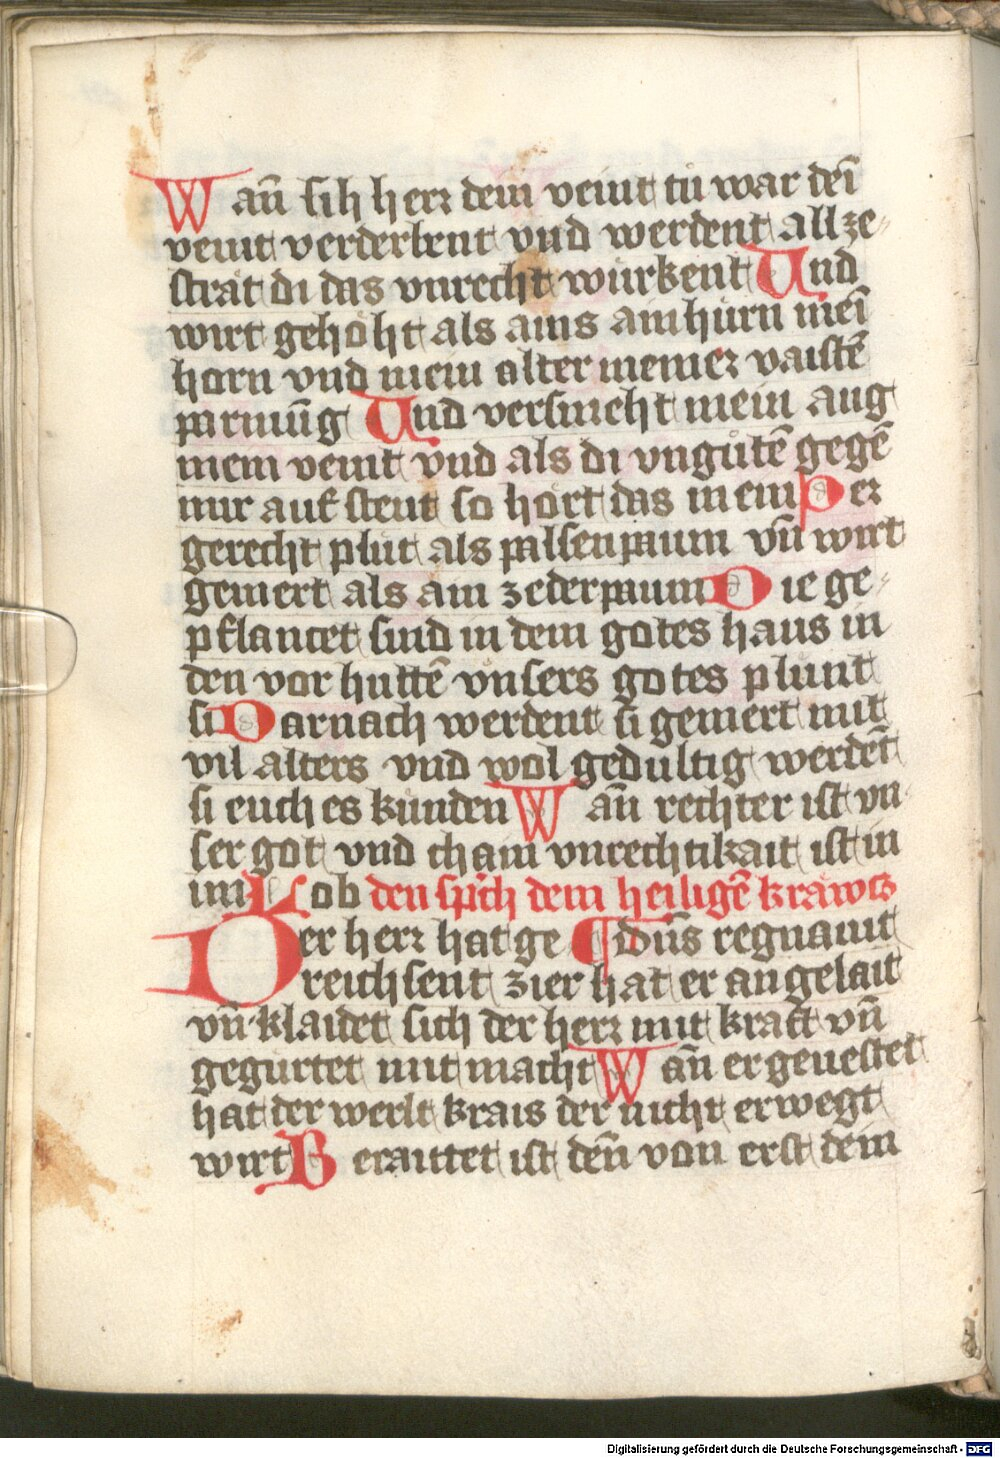 Wañ sih herr dein veint tu war deī
veint verderbent vnd werdent all ze-
strät di das vnrecht würkent Und
wirt gehöht als ains ainhürn meī
horn vnd mein alter meiner vaistē
parmūg Und versmeht mein aug
mein veint vnd als di vngůtē gegē
mir auf stent so hört das mein Per
gerecht plüt als palsenpaum vñ wirt
gemert als ain zederpaum Die ge-
pflanczet sind in dem gotes haus in
den vor hüttē vnsers gotes plüent
si Darnach werdent si gemert mit
vil alters vnd wol gedultig werdēt
si euch es künden Wañ rechter ist vn-
ser got vnd chain vnrechtikait ist in
im Lob den sp̄ch dem heiligē kräwcz
Der herr hat ge ¶ Dñs regnauit
reichsent zier hat er angelait
vñ klaidet sich der herr mit kraft vñ
gegürtet mit macht Wañ er geuestet
hat der werlt krais der nicht erwegt
wirt Beraittet ist deñ von erst dein
Digitalisierung gefördert durch die Deutsche Forschungsgemeinschaft - DFG